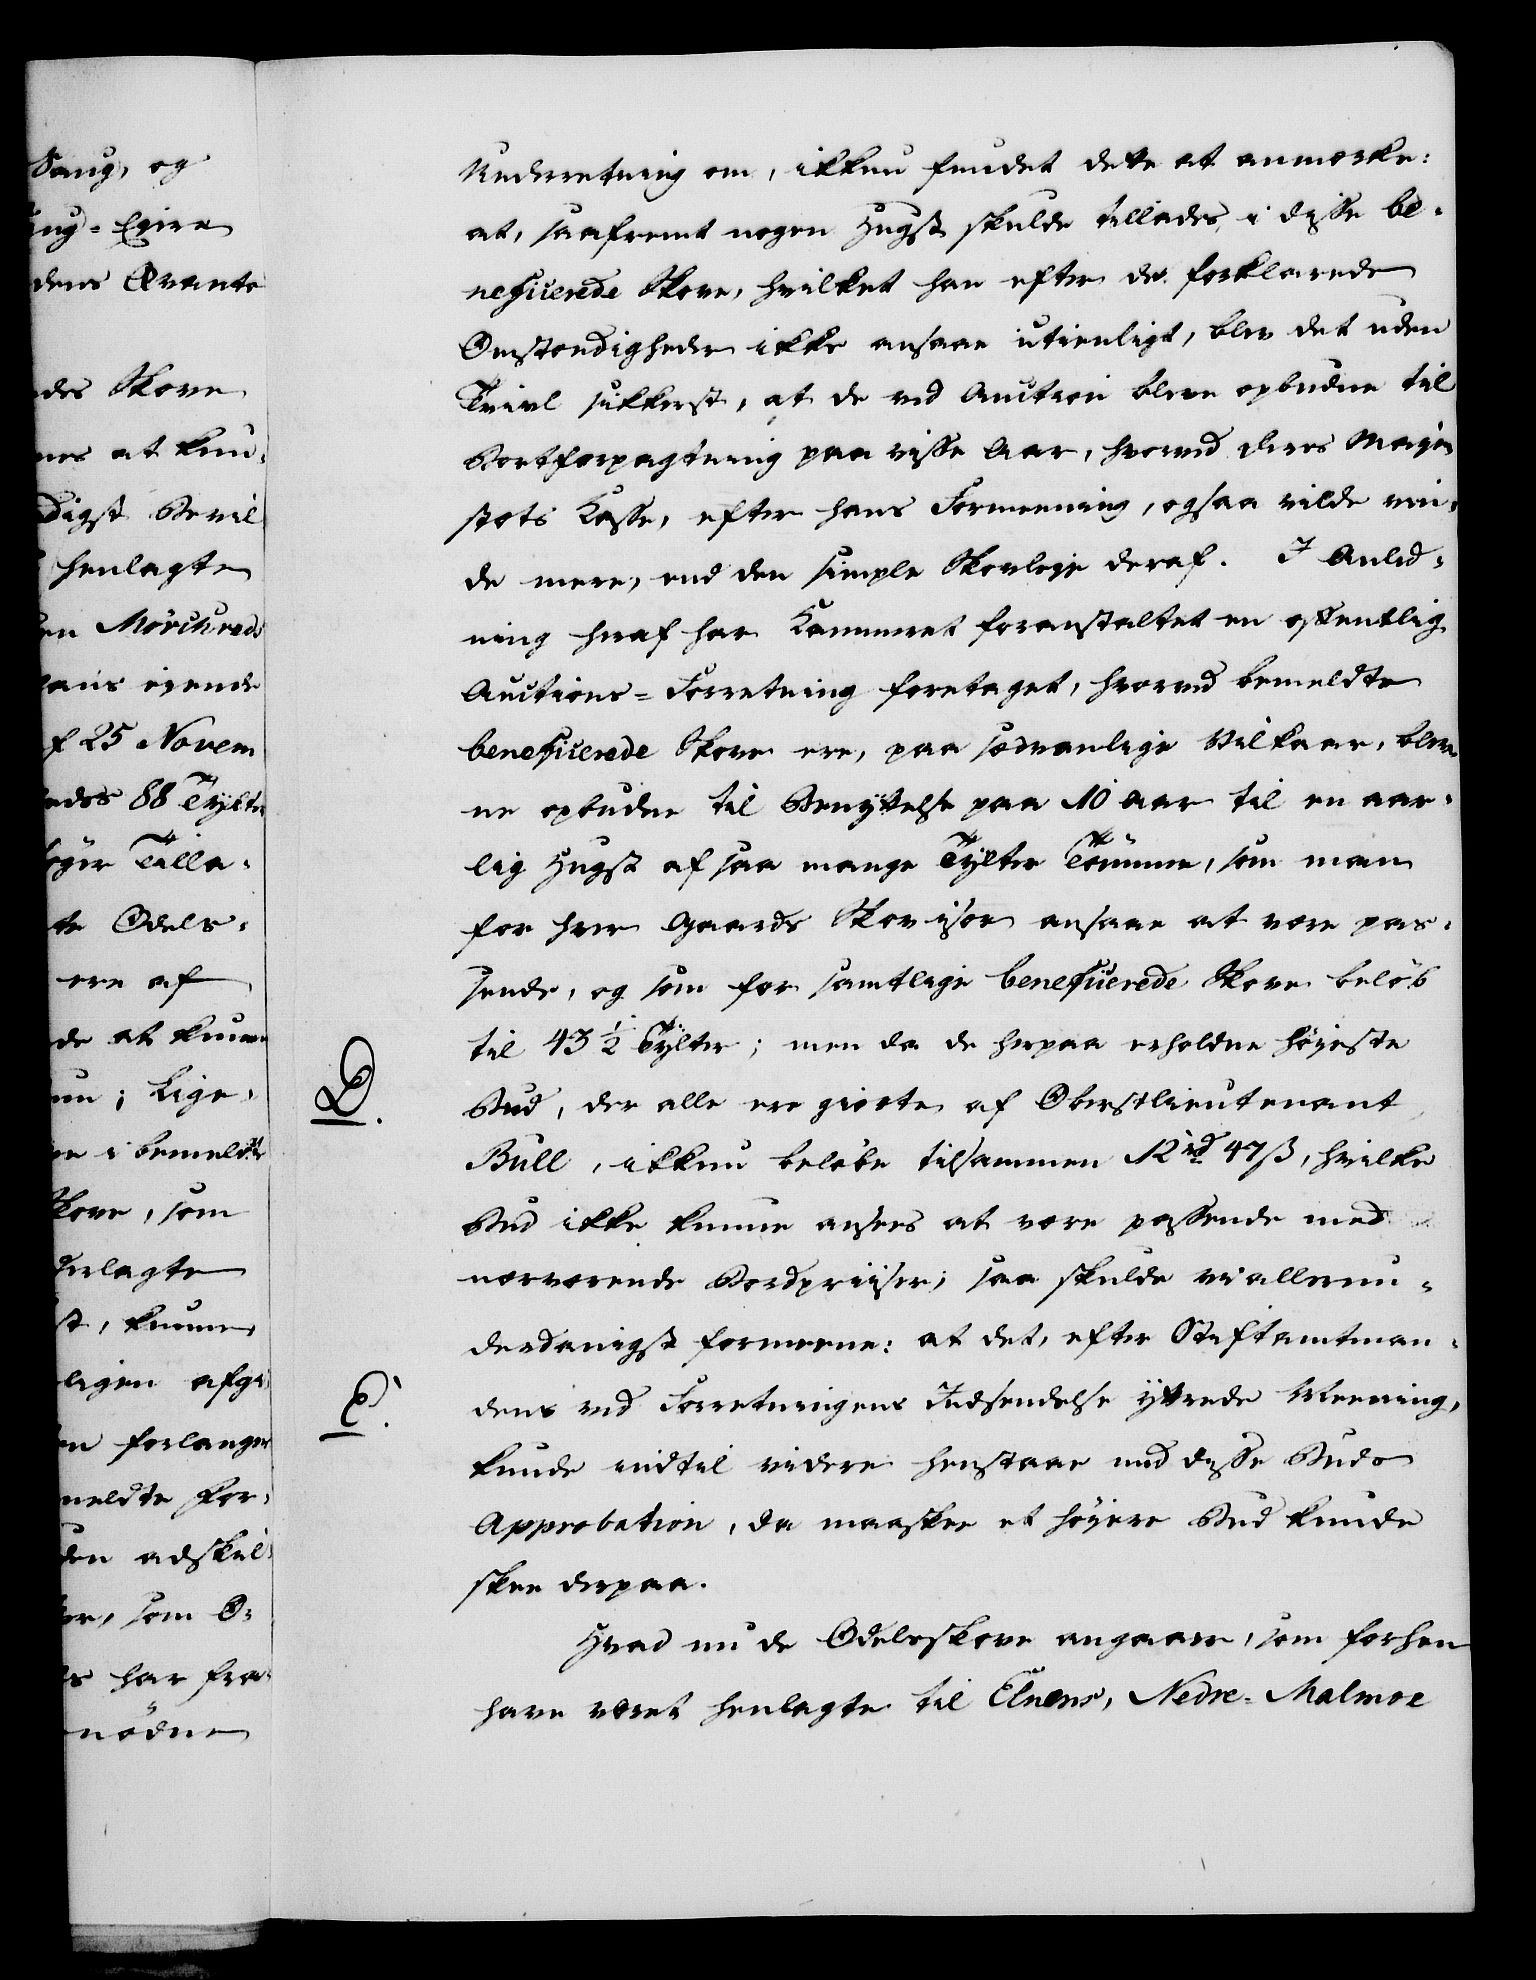 Saug, og
ug-Eiere
dens Qvanto
des Skove
nes at kun-
digst Bevil
henlagte
en Mörchreds
hans eiende
f 25 Novem
ades 88 Tylter
Tilla-
te Odels-
ere af
de at kunne
un; Lige-
i bemeldte
Skove, som
derlagte
st, kunne
ligen afgi
en forlanger
meldte For-
den adskil
er, som O-
s har fra-
nödne
Underretning om, ikkun fundet dette at anmærke:
at, saafremt nogen Hugst skulde tillades i disse be-
neficerede Skove, hvilket han efter de forklarede
Omstændigheder ikke ansaae utienligt, blev det uden
Tvivl sikkerst, at de ved Auction bleve opbudne til
Bortforpagtning paa visse Aar, hvorved Deres Maje-
stæts Kasse, efter hans Formeening, ogsaa vilde vin-
de mere, end den simple Skovleje deraf. I Anled-
ning heraf har Kammeret foranstaltet en offentlig
Auctions-Forretning foretaget, hvorved bemeldte
beneficerede Skove ere, paa sædvanlige Vilkaar, blev-
ne opbudne til Benyttelse paa 10 Aar til en aar-
lig Hugst af saa mange Tylter Tömmer, som man
for hver Gaards Skov især ansaae at være pas-
sende, og som for samtlige beneficerede Skove belöb
til 43 1/2 Tylter; men da de herpaa erholdne höjeste
D.
Bud, der alle ere giorte af Oberstlieutenant
Bull, ikkun belöbe tilsammen 12 rd 47 ß, hvilke
Bud ikke kunne ansees at være passende med
nærværende Bordpriiser; saa skulde vi allerun-
derdanigst formeene: at det, efter Stiftamtman-
E.
dens ved Forretningens Indsendelse yttrede Meening,
kunde indtil videre henstaae med disse Buds
Approbation, da maaskee et höjere Bud kunde
skee derpaa.
Hvad nu de Odelsskove angaaer, som forhen
have været henlagte til Elnæs, Nedre-Malmoe